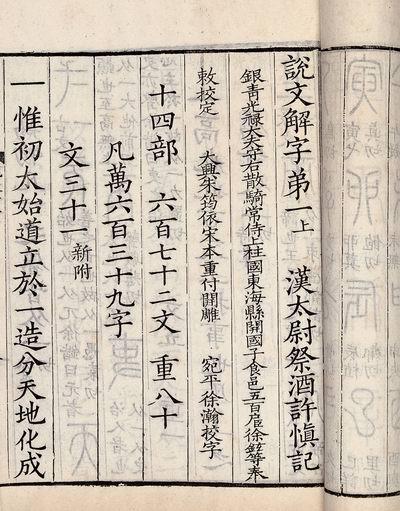 說文解字弟一上 漢太尉祭酒許愼記
銀青光祿大夫守右散騎常侍上柱國東海縣開國子食邑五百戶徐鉉等奉
敕校定 大興朱筠依宋本重付開雕 宛平徐瀚校字
十四部 六百七十二文 重八十
凡萬六百三十九字
文三十一新附
一 惟初太始道立於一造分天地化成